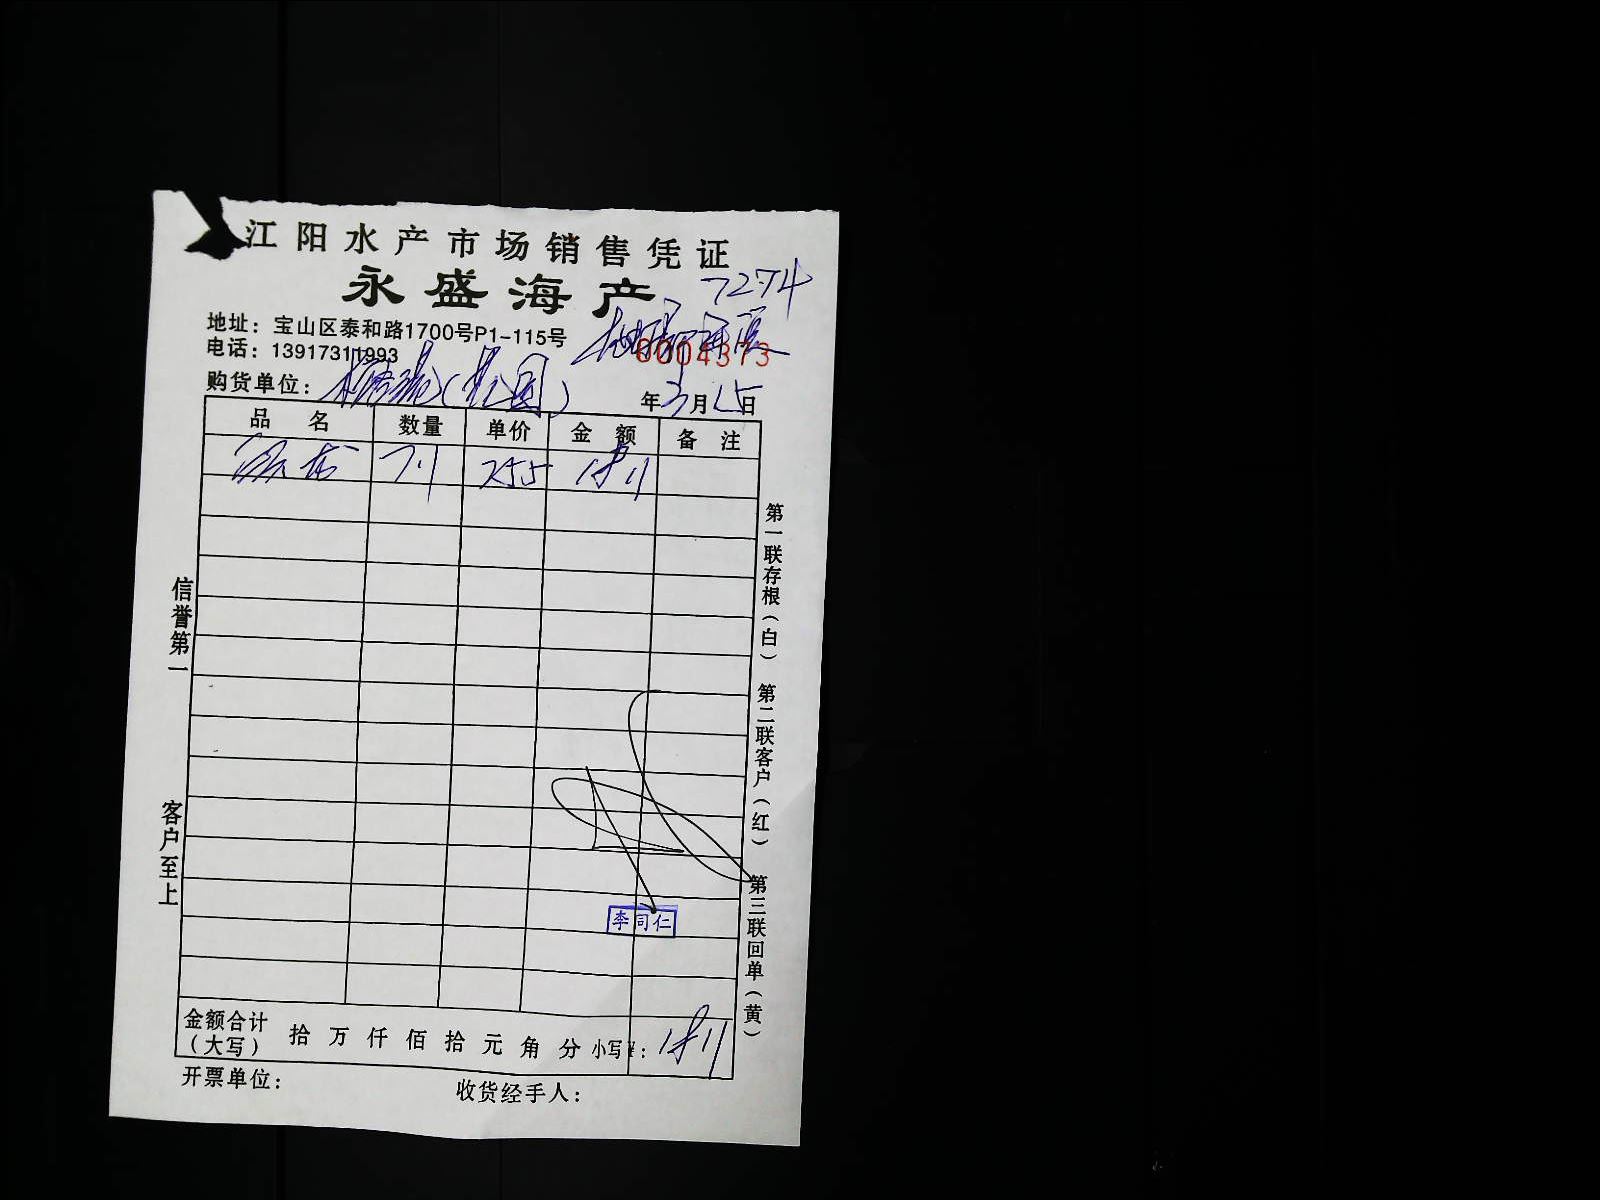 江阳水产市场销售凭证
永盛海产
7274
地址：宝山区泰和路1700号P1-115号
0004373
电话：13917311993
购货单位： 年3月15日
品名 数量 单价 金额 备注
255
信誉第一
客户至上
第一联存根（白） 第二联客户（红） 第三联回单（黄）
李同仁
金额合计（大写） 拾 万 仟 佰 拾 元 角 分 小写¥：
开票单位： 收货经手人：